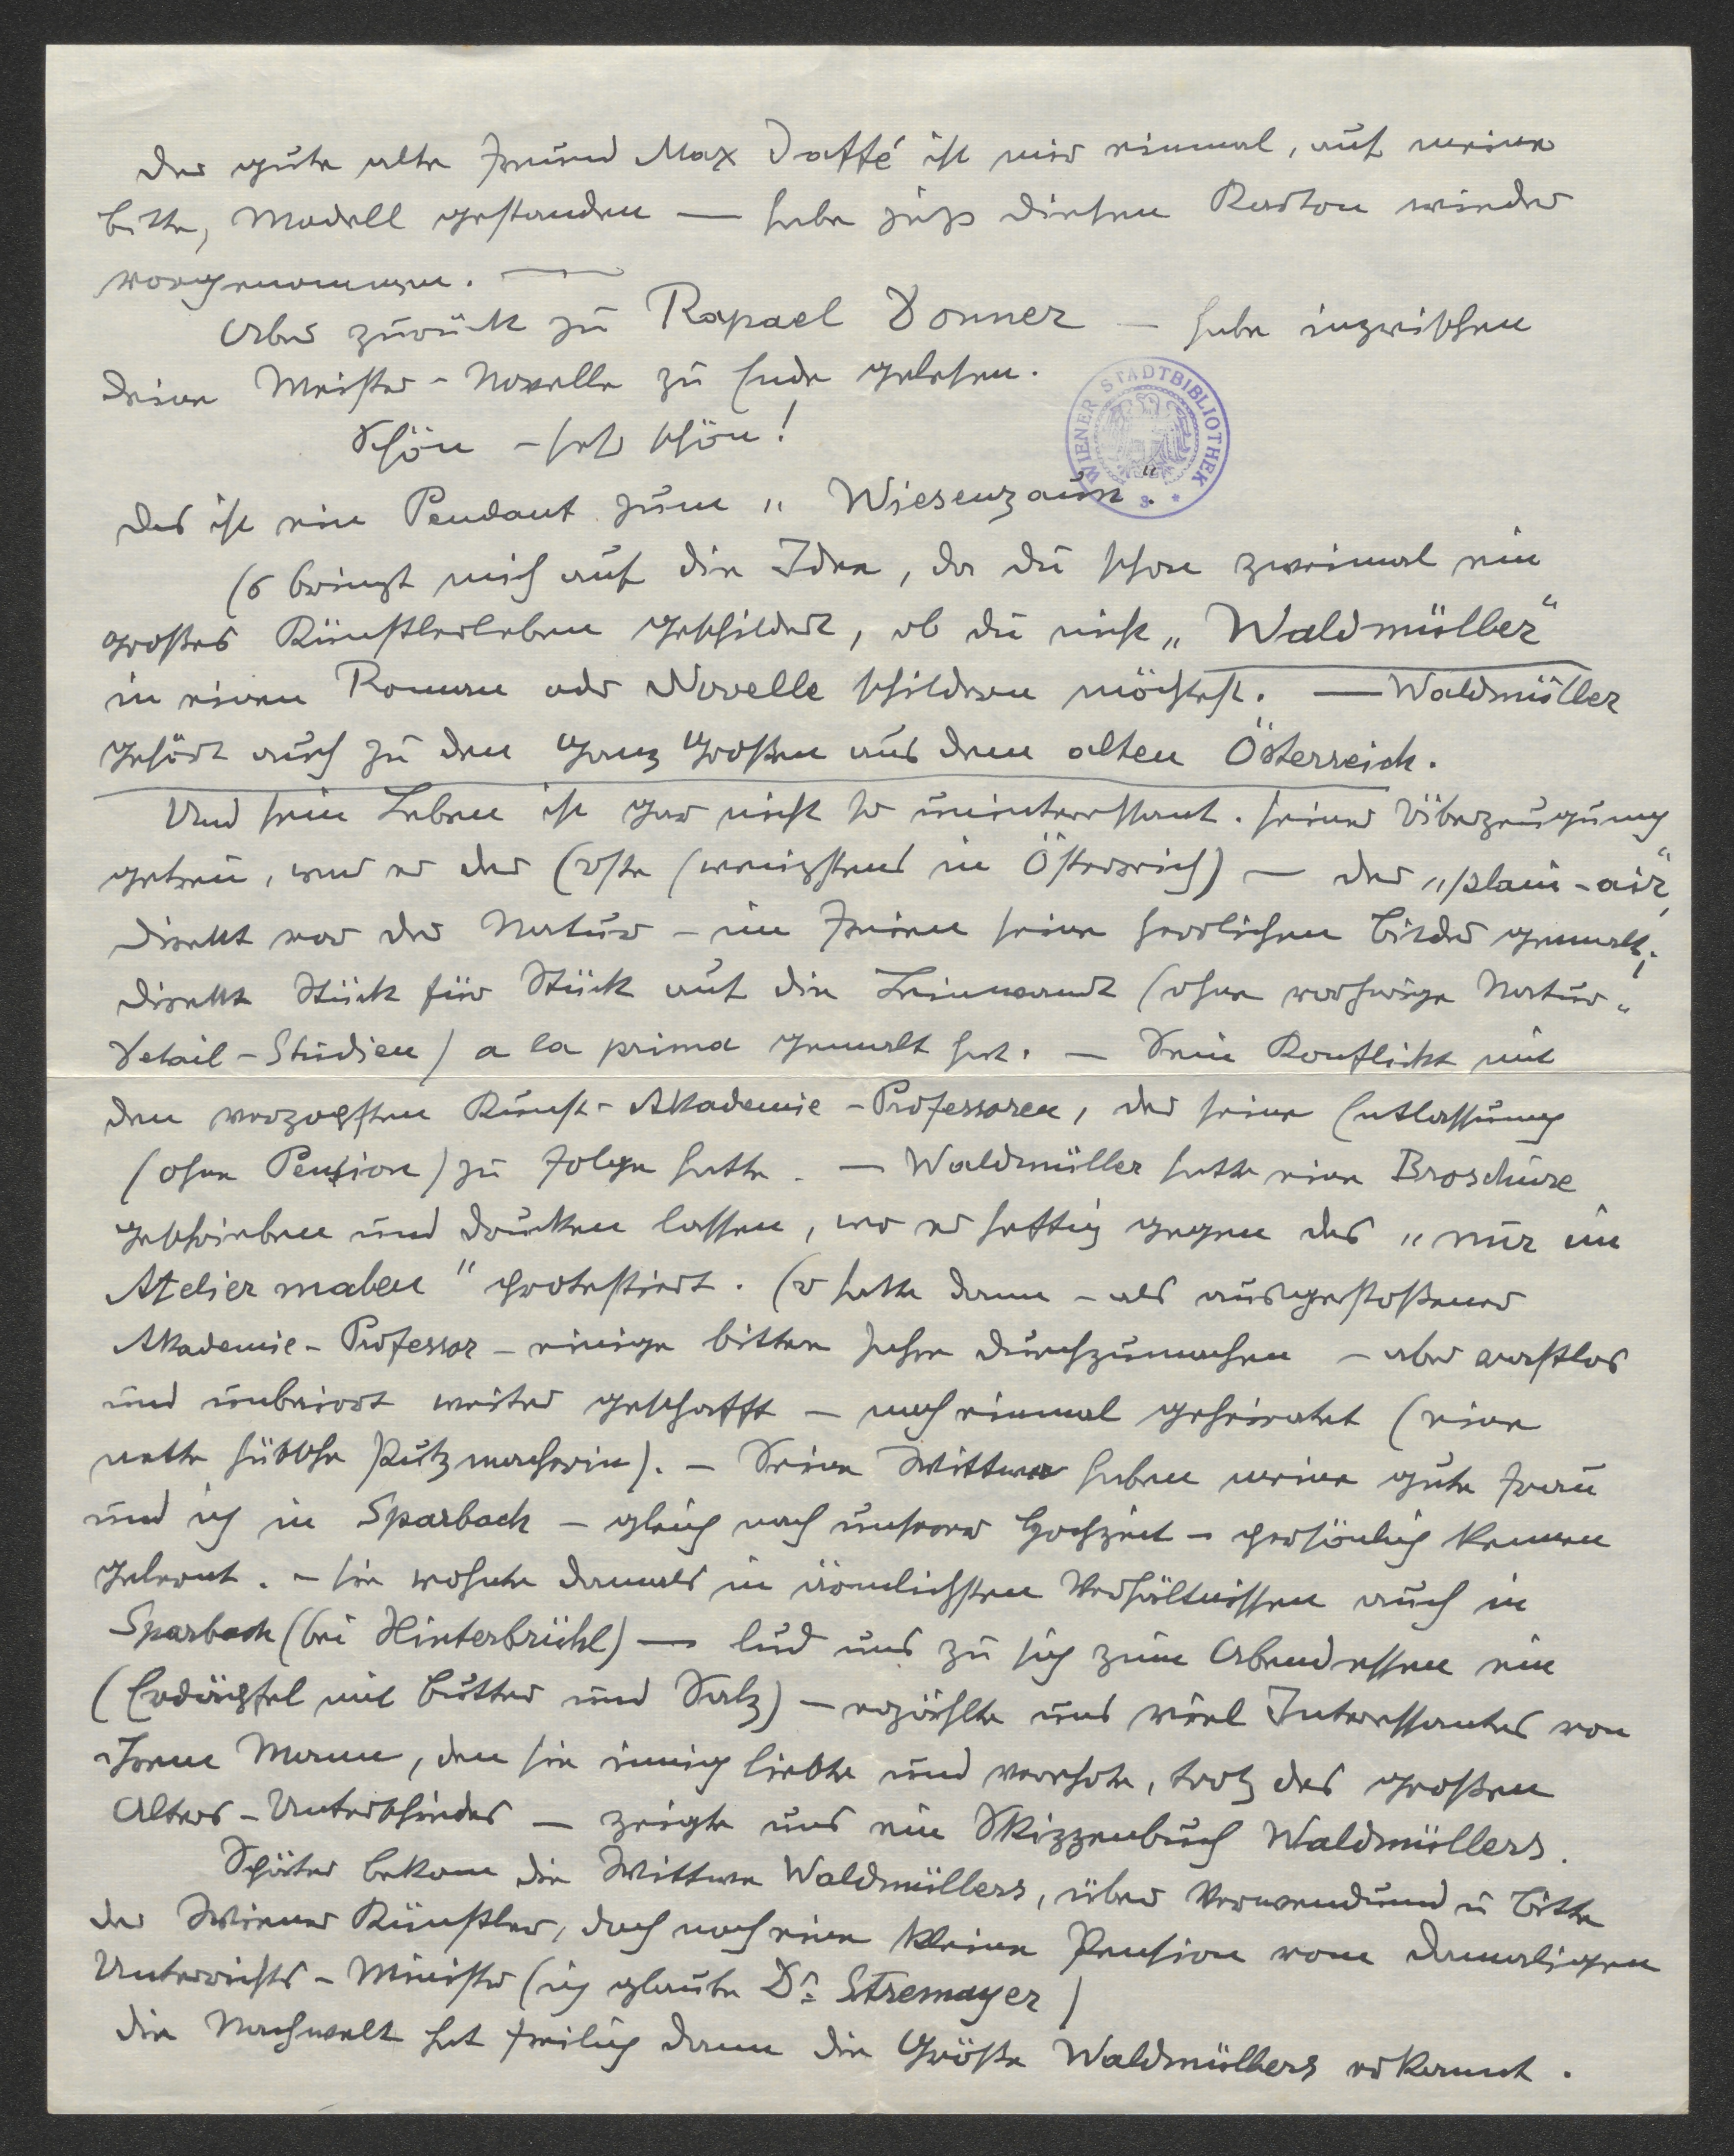 Der gute alte Freund Max Jaffé ist mir einmal, auf meine
Bitte, Modell gestanden — habe jetzt diesen Karton wieder
vorgenommen. —
Aber zurück zu Rapael Donner — habe inzwischen
Deine Meister-Novelle zu Ende gelesen.
Schön – sehr schön!
WIENER STADTBIBLIOTHEK
Das ist ein Pendant zum „Wiesenzaun“.
Es bringt mich auf die Idee, da Du schon zweimal ein
großes Künstlerleben geschildert, ob du nicht „Waldmüller“
in einem Roman oder Novelle schildern möchtest. — Waldmüller
gehört auch zu den ganz Großen aus dem alten Österreich.
Und sein Leben ist gar nicht so uninteressant. Seiner Überzeugung
getreu, war er der Erste (wenigstens in Österreich) — der „plain-air“,
direkt vor der Natur – im Freien seine herrlichen Bilder gemalt;
direkte Stück für Stück auf die Leinwand (ohne vorherige Natur-
Detail-Studien) a la prima gemalt hat. — Sein Konflikt mit
den verzopften Kunst-Akademie-Professoren, der seine Entlassung
(ohne Pension) zu Folge hatte. — Waldmüller hatte eine Broschüre
geschrieben und drucken lassen, wo er heftig gegen das „nur im
Atelier malen“ protestiert. Er hatte dann – als ausgestoßener
Akademie-Professor – einige bittere Jahre durchzumachen – aber rastlos
und unbeirrt weiter geschafft – noch einmal geheiratet (eine
nette hübsche Putzmacherin). – Seine Wittwe haben meine gute Frau
und ich in Sparbach – gleich nach unserer Hochzeit – persönlich kennen
gelernt. – Sie wohnte damals in ärmlichsten Verhältnissen auch in
Sparbach (bei Hinterbrühl) — lud uns zu sich zum Abendessen ein
(Erdäpfel mit Butter und Salz) – erzählte uns viel Interessantes von
ihrem Manne, den sie innig liebte und verehrte, trotz des großen
Alters-Unterschiedes — zeigte uns ein Skizzenbuch Waldmüllers.
Später bekam die Wittwe Waldmüllers, über Verwendund u Bitte
der Wiener Künstler, doch noch eine kleine Pension vom damaligen
Unterrichts-Minister (ich glaube Dr. Stremayer)
Die Nachwelt hat freilich dann die Größe Waldmüllers erkannt.